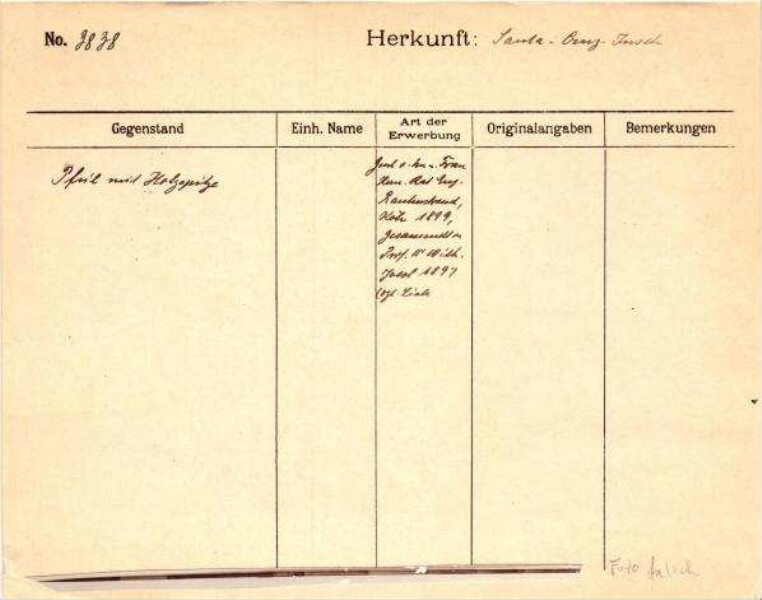 No. 3838
Herkunft: Santa-Cruz-Inseln
Gegenstand
Einh. Name
Art der
Erwerbung
Originalangaben
Bemerkungen
Pfeil mit Holzspitze
u. Frau
Rat Eug.
Rautenstrauch,
Köln 1899,
gesammelt v.
Prof. Dr Wilh.
Joest 1897
Foto falsch